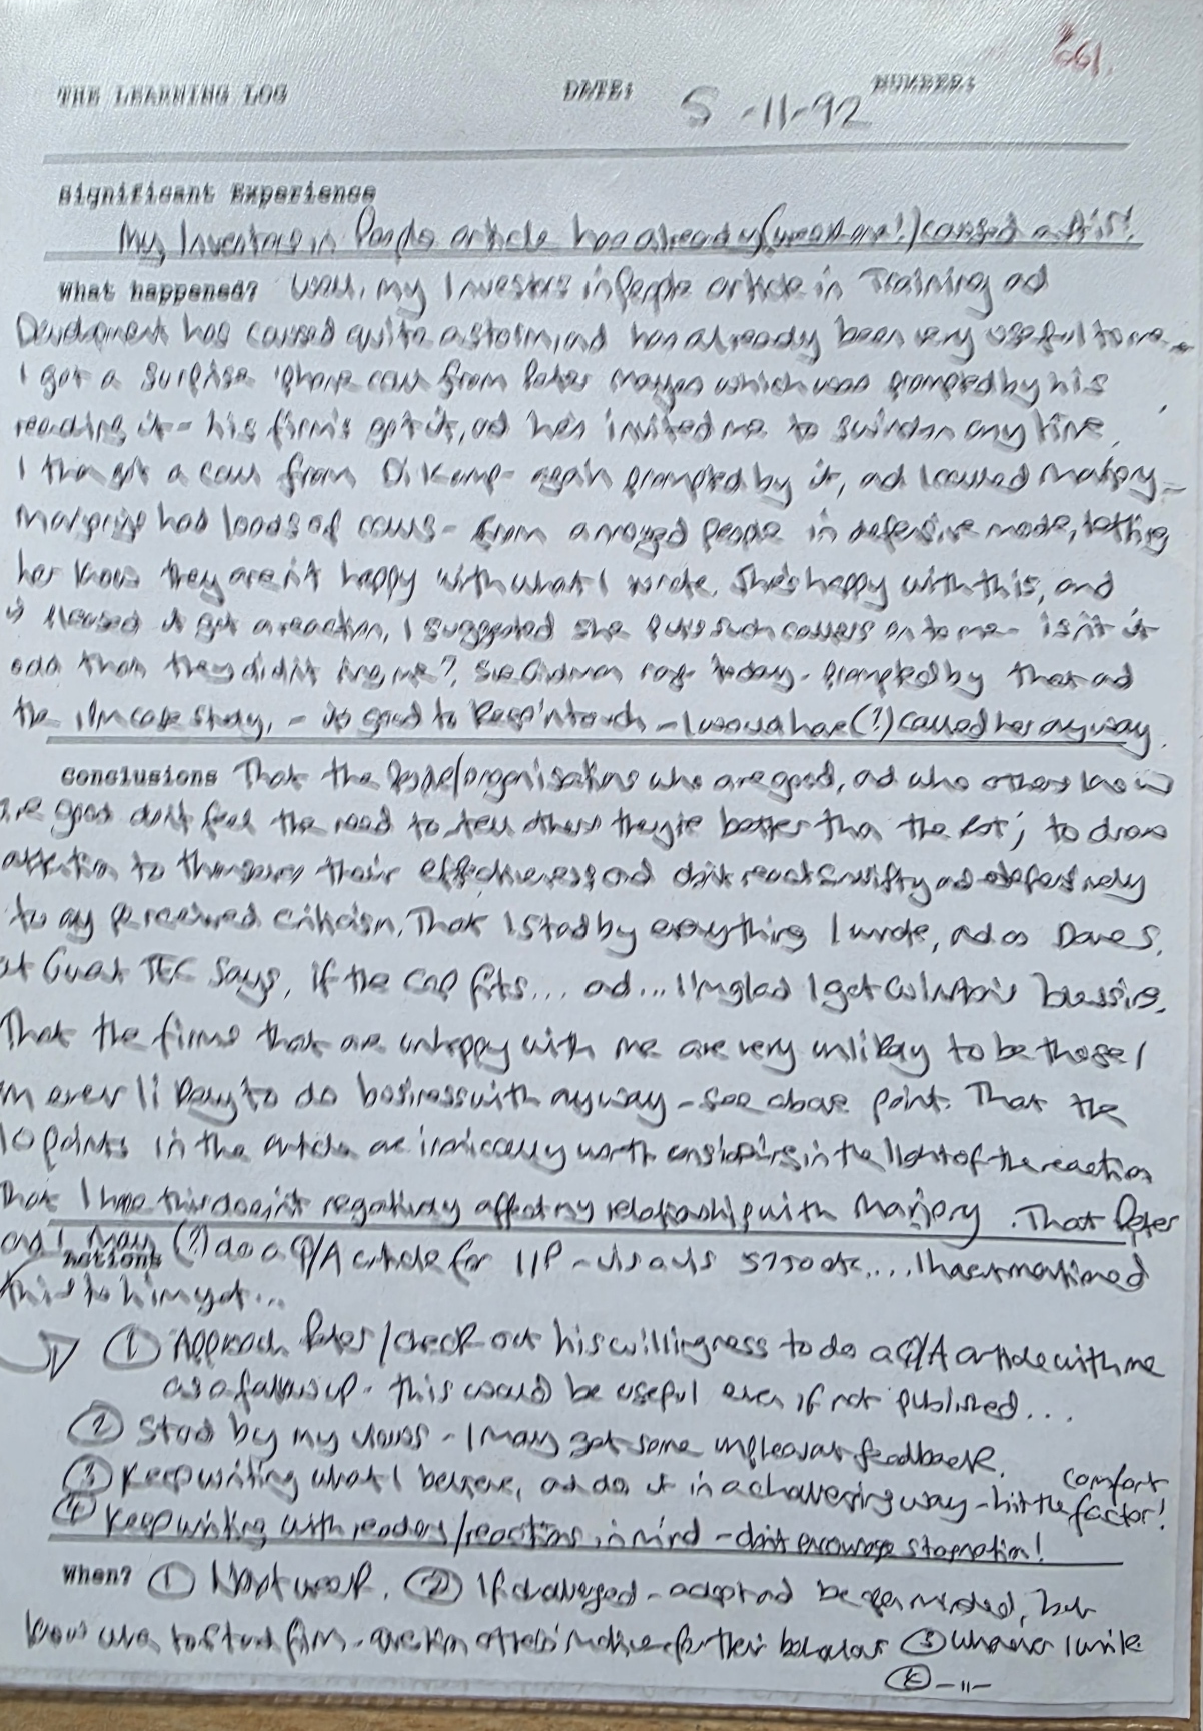 661.
THE LEARNING LOG DATE: 5-11-92 NUMBER:
Significant Experience
My Investors in People article has already (week one!) caused a stir!
What happened? Well, my Investors in People article in Training and
Development has caused quite a storm, and has already been very useful to me -
I got a surprise 'phone call from Peter which was prompted by his
reading it - his firm's got it, and he's invited me to Swindon any time.
I then got a call from Di Kamp - again prompted by it, and I called Marjory -
Marjory's had loads of calls - from annoyed people in defensive mode, letting
her know they aren't happy with what I wrote. She's happy with this, and
is pleased it got a reaction. I suggested she puts such callers on to me - isn't it
odd that they didn't ring me? Sue rang today - prompted by that and
the case study, - it's good to keep in touch - I would have (?) called her anyway.
Conclusions That the people/organisations who are good, and who others know
are good don't feel the need to tell others they're better than the rest; to draw
attention to their effectiveness and don't react swiftly and defensively
to any perceived criticism. That I stand by everything I wrote, and as Dave S.
at Gwent TEC says, if the cap fits... and... I'm glad I got blessing.
That the firms that are unhappy with me are very unlikely to be those I
'm ever likely to do business with anyway - see above point. That the
10 points in the article are ironically worth considering in the light of the reaction
That I hope this doesn't negatively affect my relationship with Marjory. That Peter
and I may (?) do a Q/A article for IIP - us etc.... I haven't mentioned
Actions
this to him yet...
① Approach Peter/check out his willingness to do a Q/A article with me
as a follow up - this would be useful even if not published...
② Stand by my views - I may get some unpleasant feedback.
③ Keep writing what I believe, and do it in a challenging way - hit the comfort factor!
④ Keep writing with readers/reactions in mind - don't encourage stagnation!
When? ① Next week. ② If challenged - adapt and be open minded, but
know when to stand firm - question others' motives for their behaviour ③ whenever I write
④ -"-